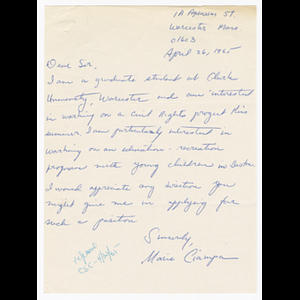 St.
Worcester Mass.
April 26, 1965
Dear Sir,
I am a graduate student at Clark
University, Worcester and am interested
in working on a Civil Rights project this
summer. I am particularly interested in
working on an education - recreation
program with young children in Boston.
I would appreciate any direction you
might give me in applying for
such a position.
Sincerely,
Marie Ciampa